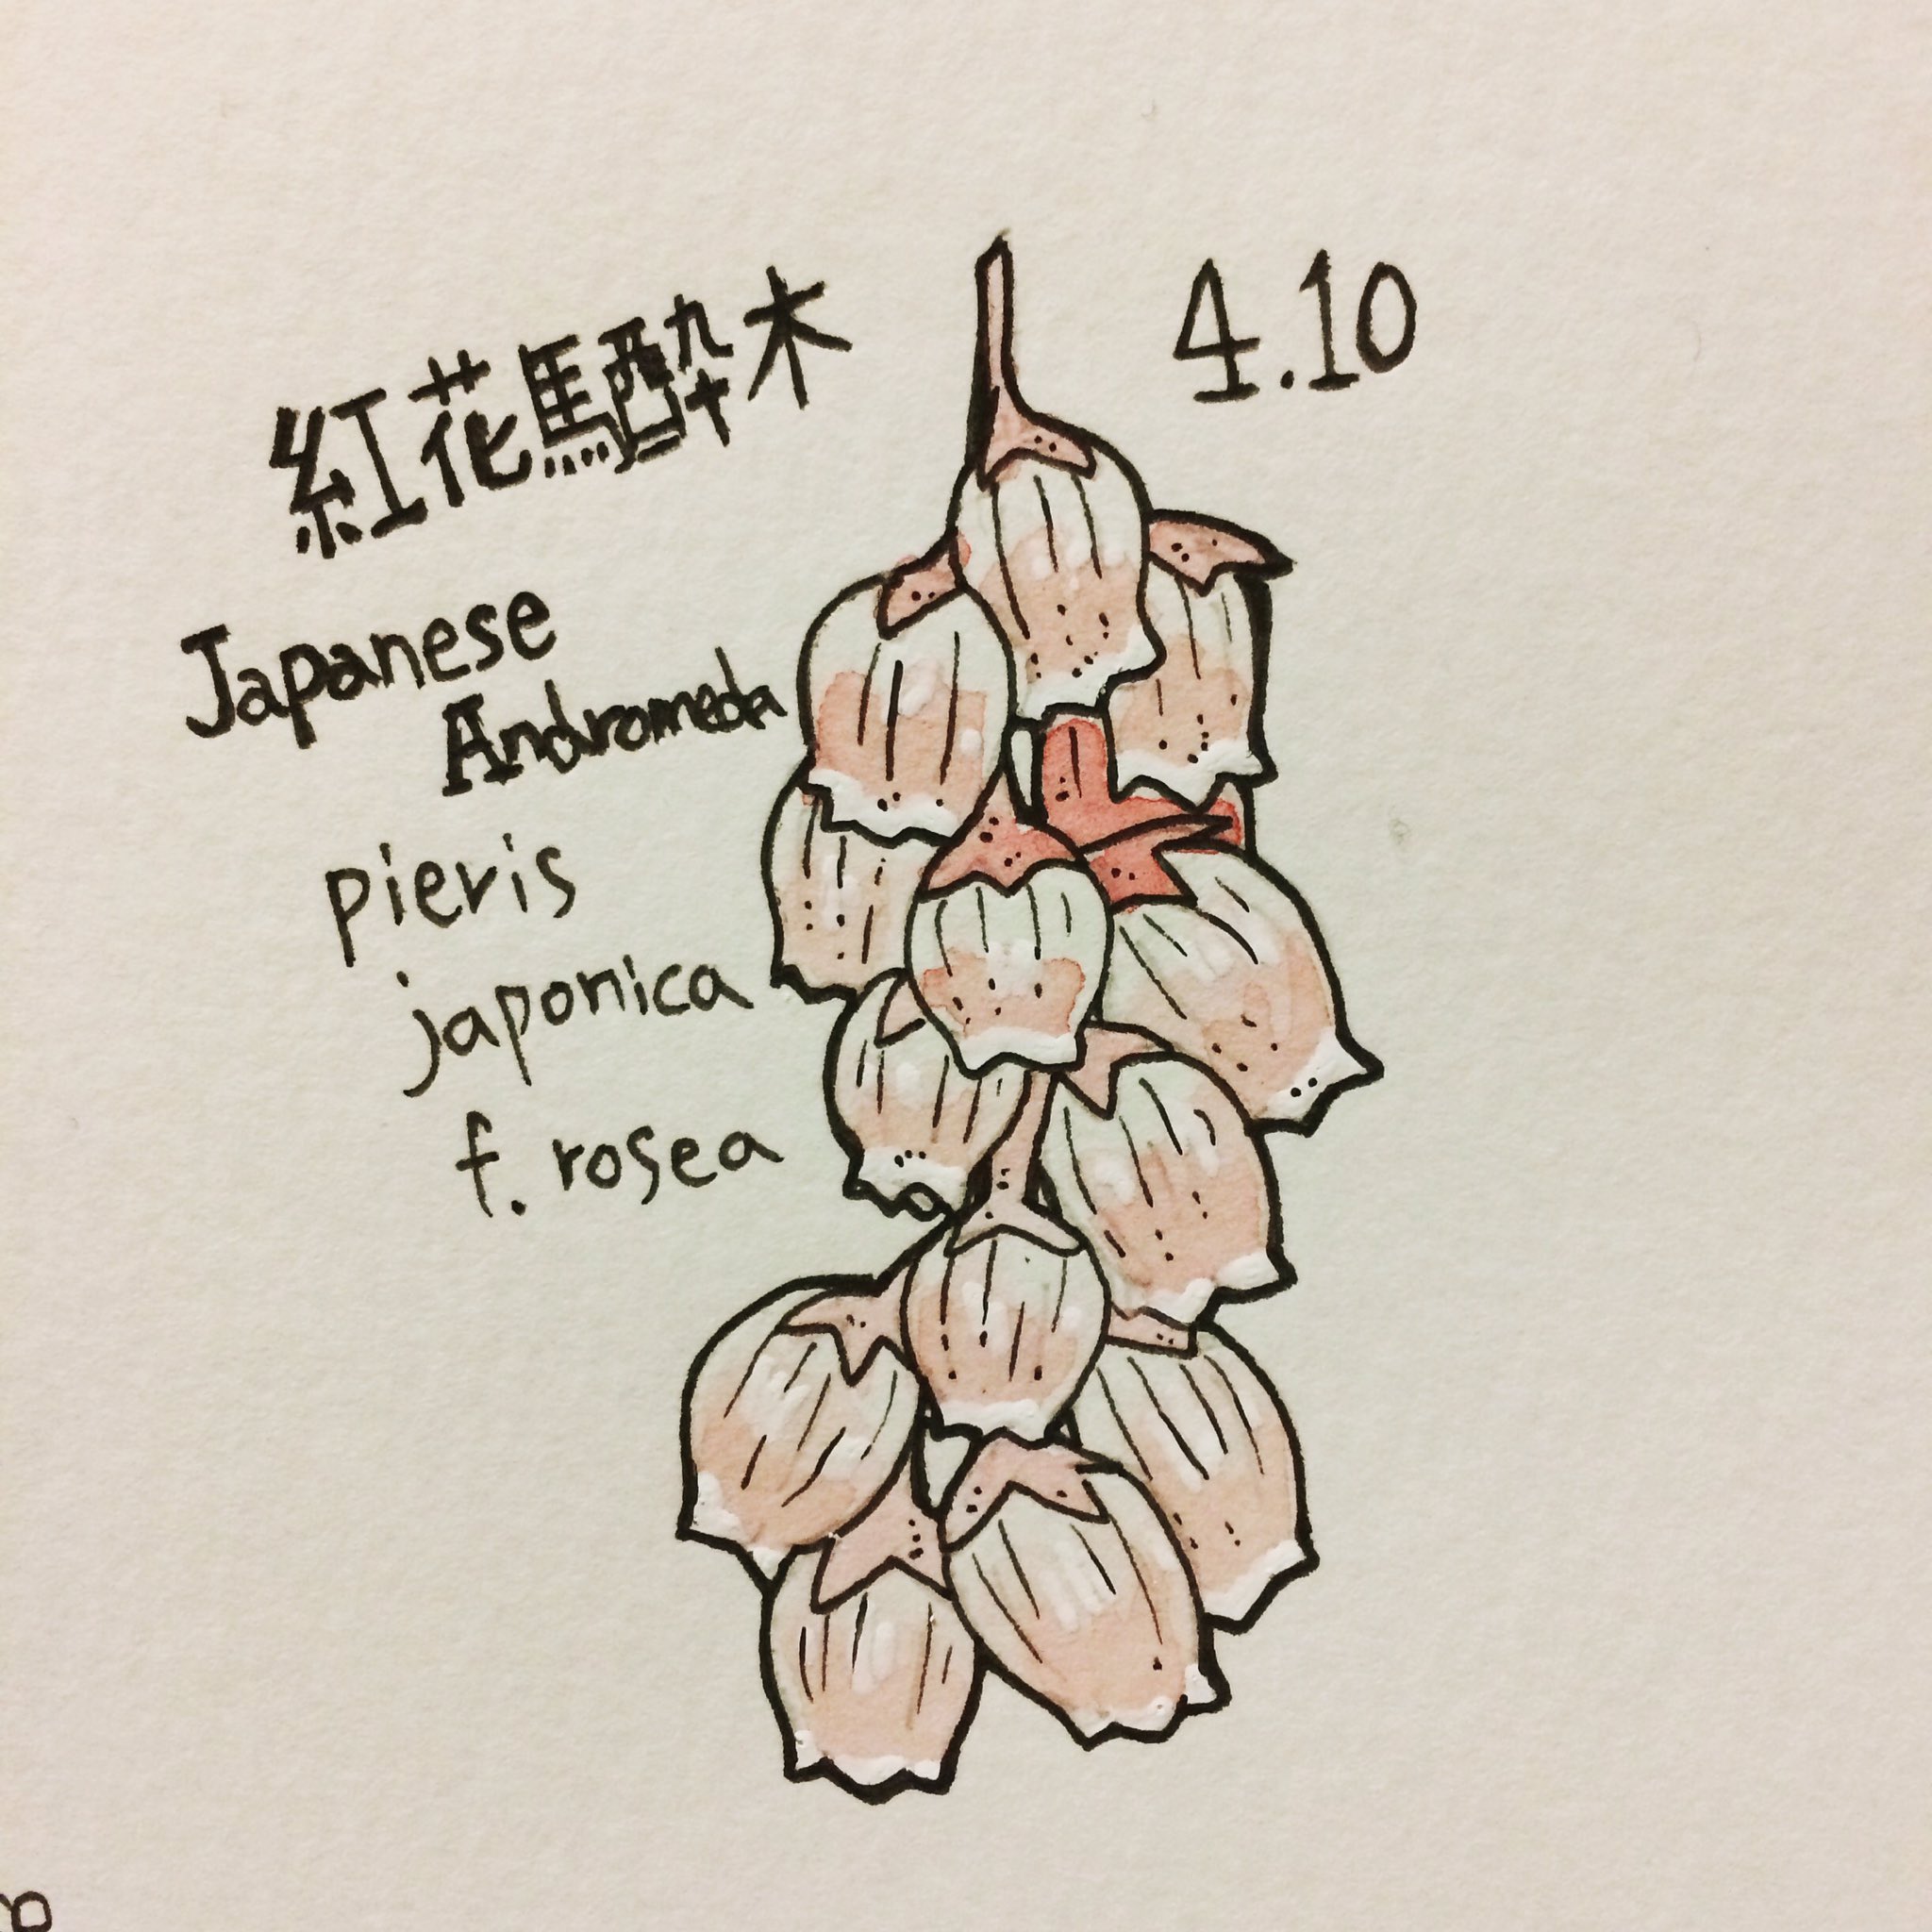 紅花馬酔木
4.10
Japanese
Andromeda
pieris
japonica
f. rosea